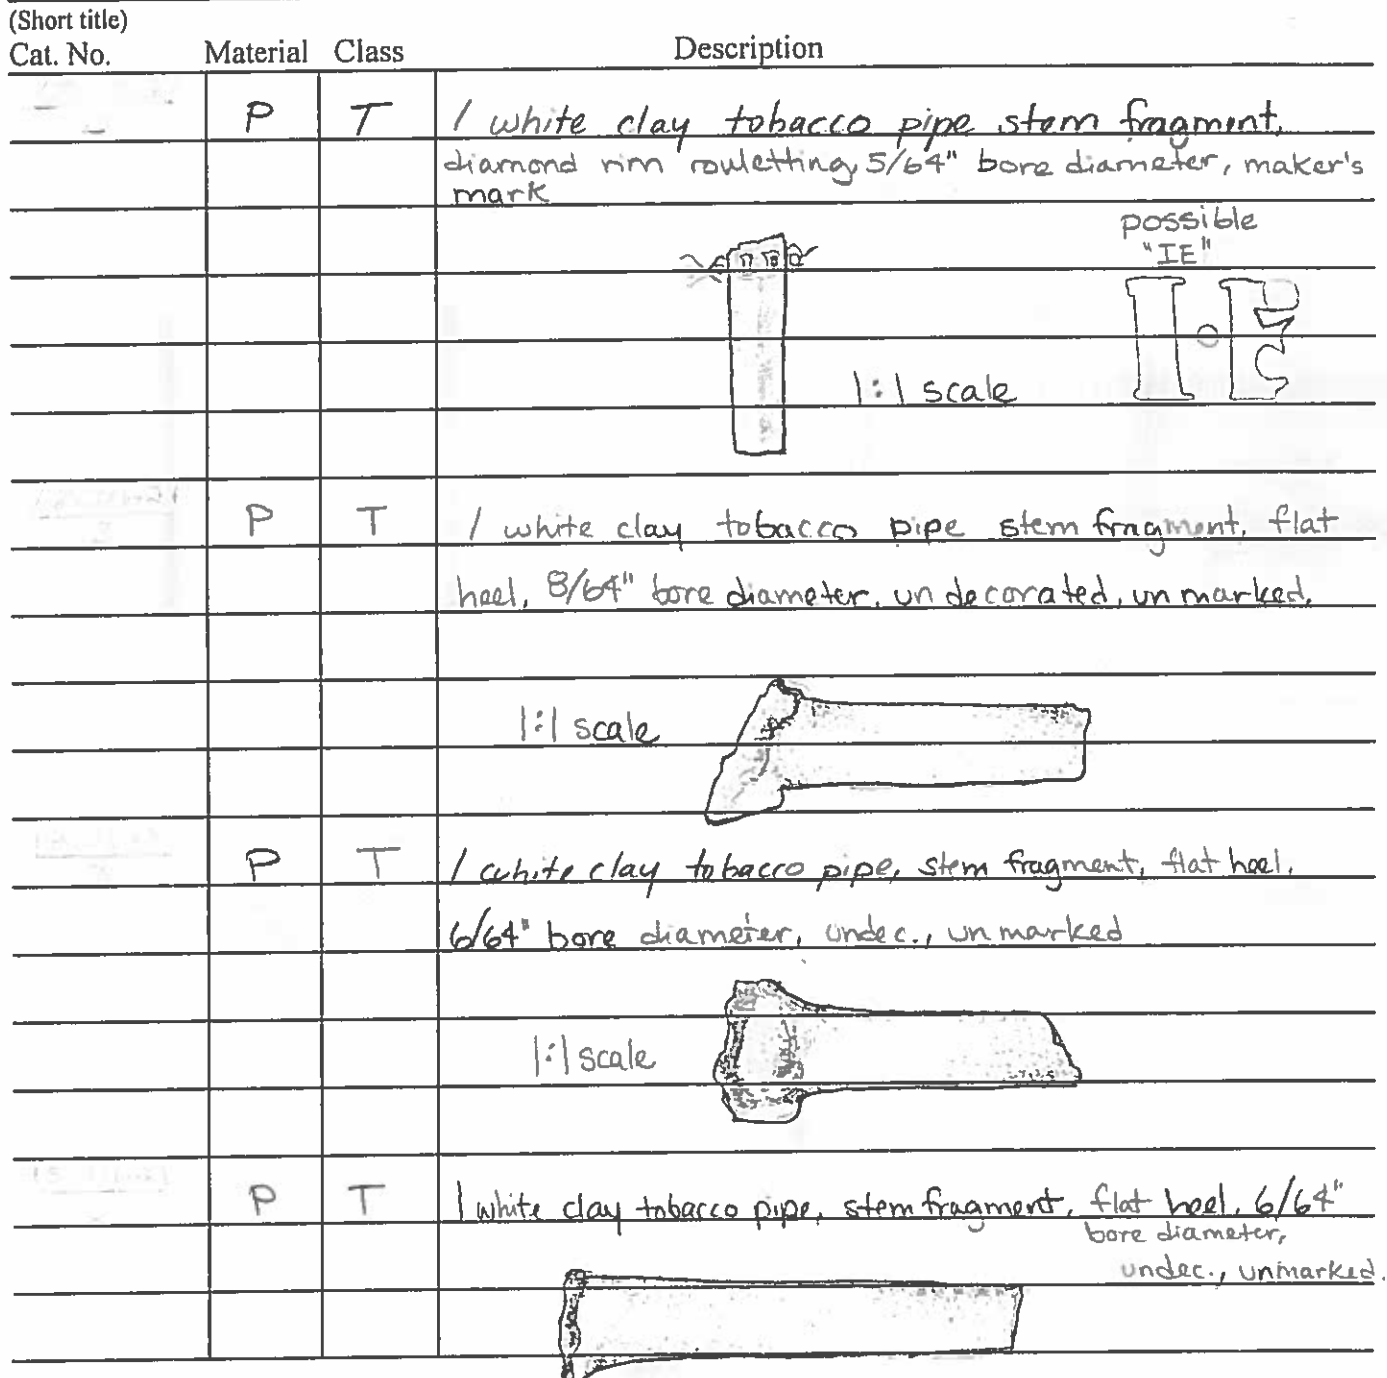 (Short title)
Cat. No. Material Class Description
P T 1 white clay tobacco pipe stem fragment,
diamond rim rouletting, 5/64" bore diameter, maker's
mark
possible
"IE"
I·E
1:1 scale
P T 1 white clay tobacco pipe stem fragment, flat
heel, 8/64" bore diameter, undecorated, unmarked.
1:1 scale
P T 1 white clay tobacco pipe, stem fragment, flat heel,
6/64" bore diameter, undec., unmarked
1:1 scale
P T 1 white clay tobacco pipe, stem fragment, flat heel, 6/64"
bore diameter,
undec., unmarked.